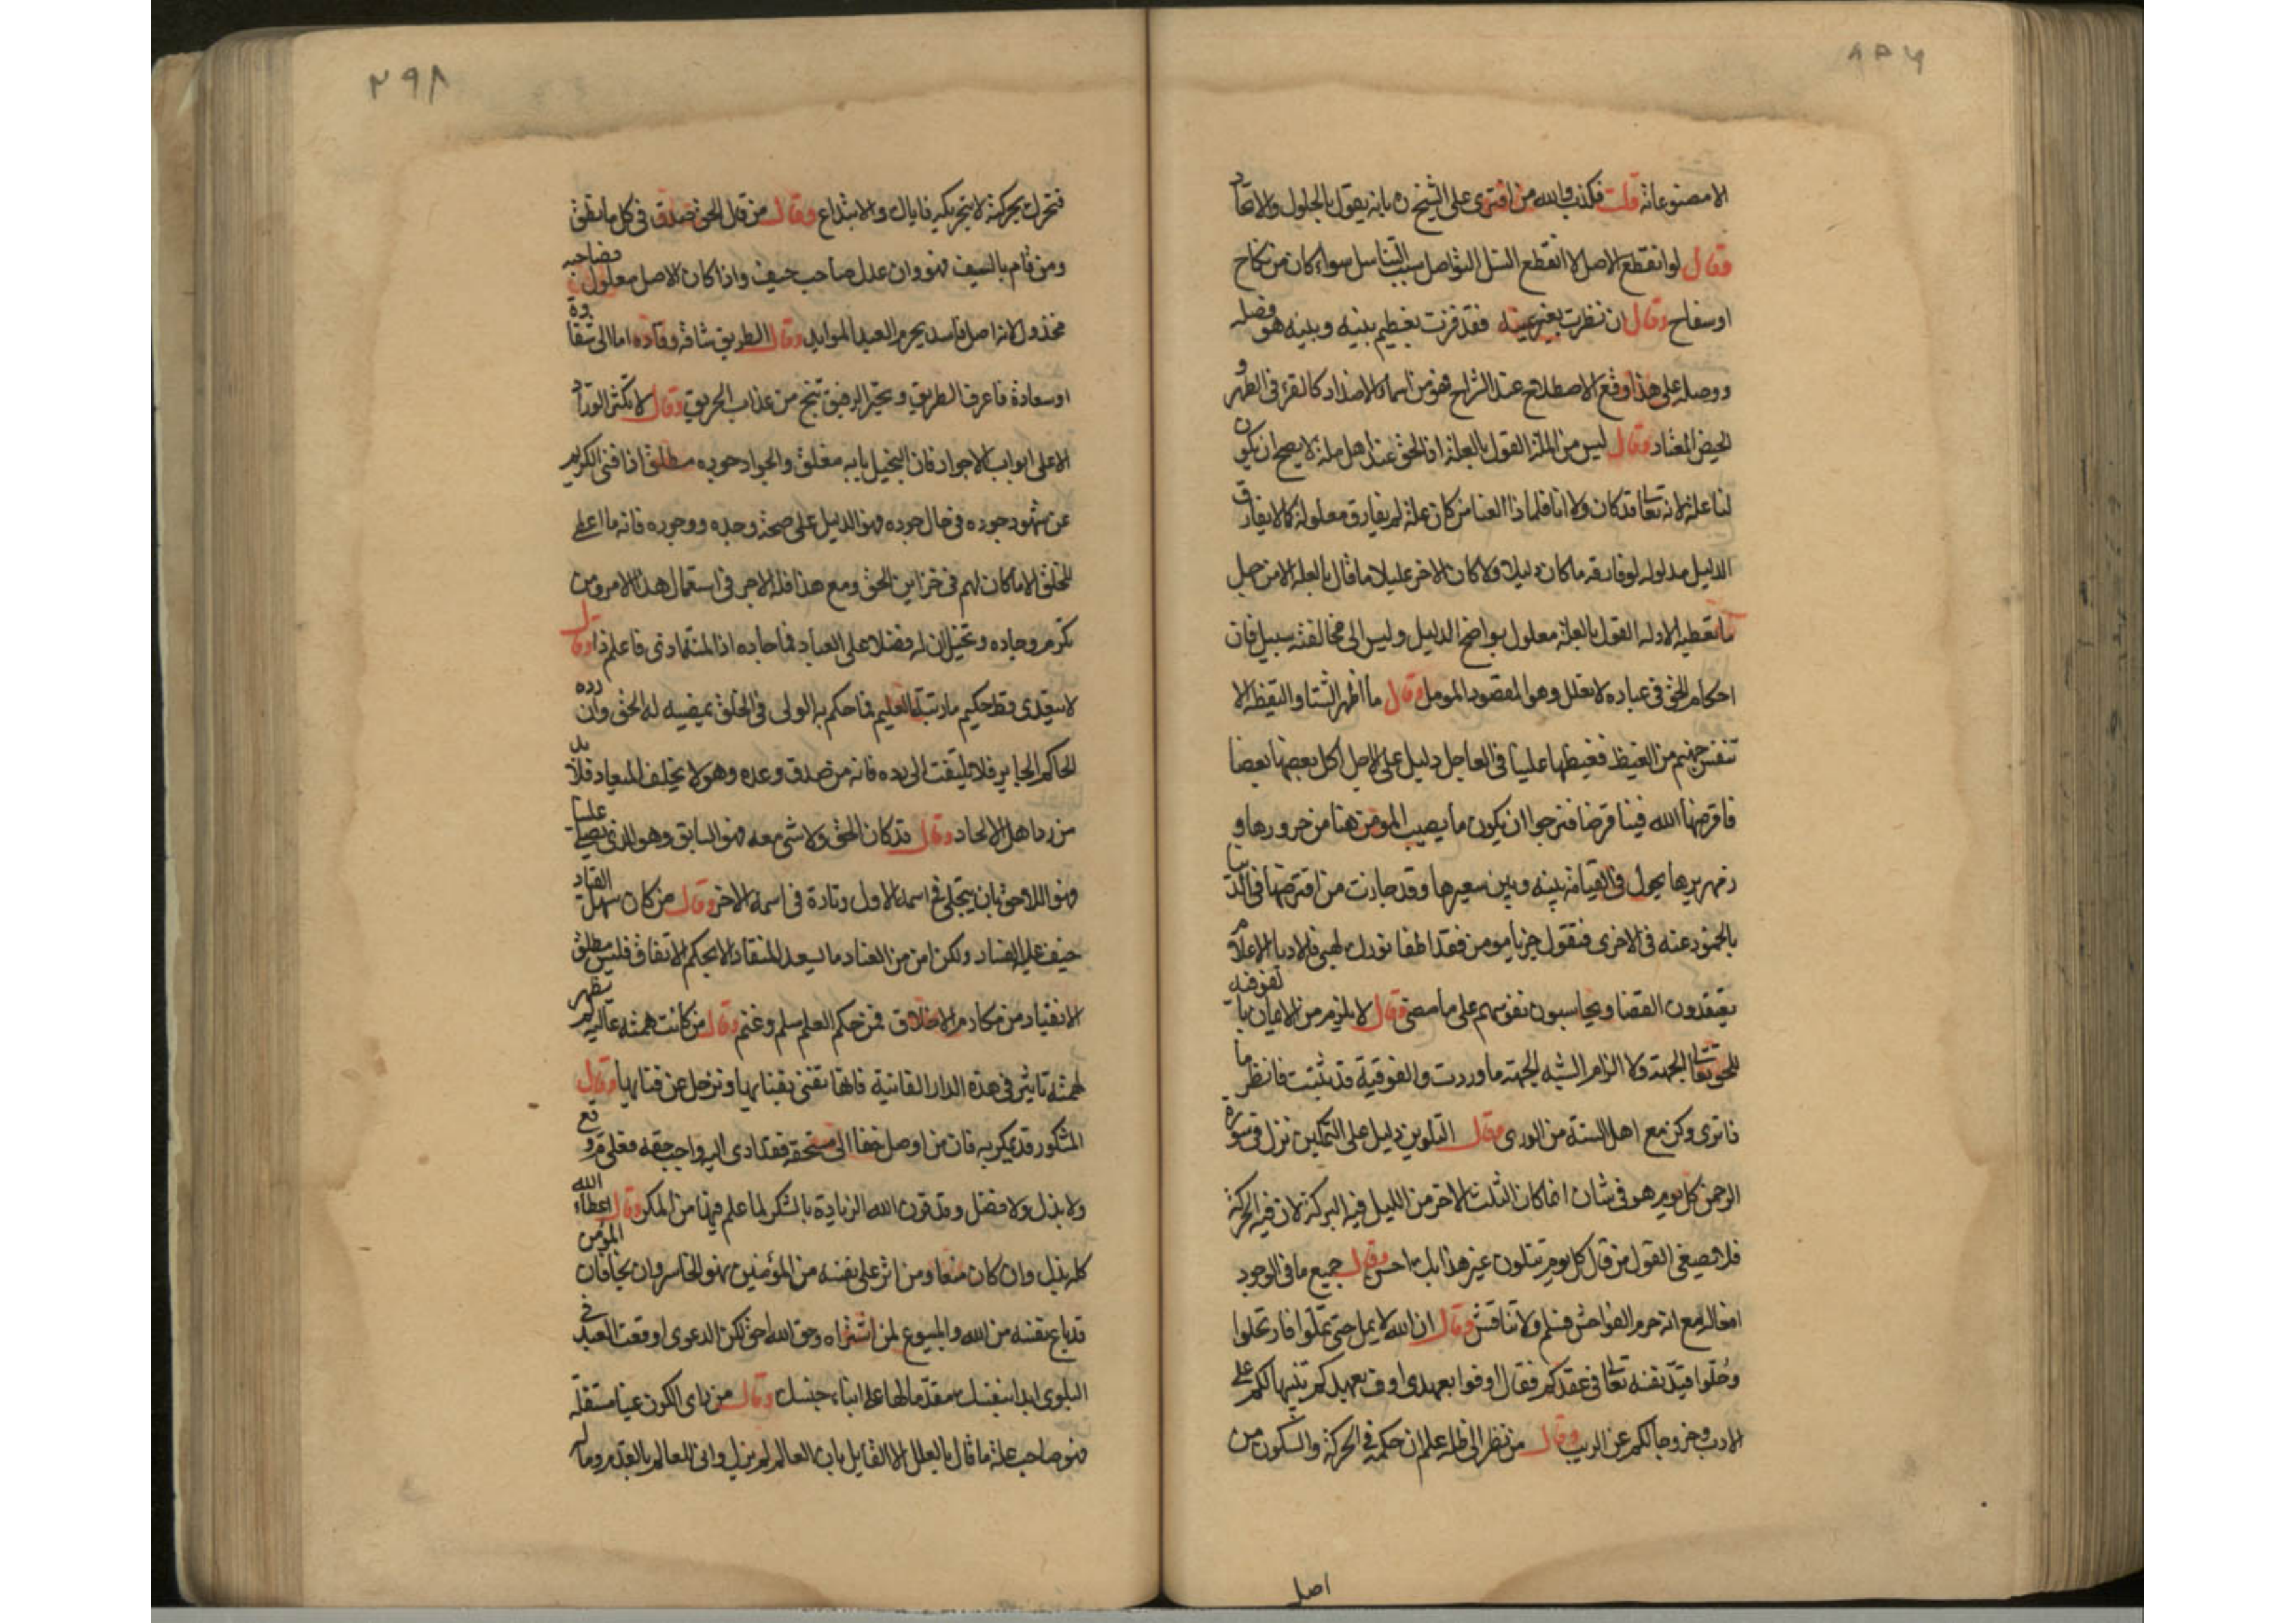 الا مصنوعاته قلت فكذب والله من افترى على الشيخ ره بانه يقول بالحلول والاتحاد
وقال لو انقطع الاصل لا انقطع النسل التواصل سبب التناسل سواء كان من نكاح
او سفاح وقال ان نظرت بغير عينه فقد فزت بعظيم بينه وبينه هو فصله
ووصله على هذا وقع الاصطلاح عند الشراح فهو من اسماء الاضداد كالقرء في الطهر و
الحيض المعتاد وقال ليس من الملة القول بالعلة اذ الحق عند اهل ملة لا يصح ان يكون
لنا علة لانه تعالى قد كان ولا انا فلماذا العنا من كان علة لم يفارق معلوله كما لا يفارق
الدليل مدلوله لو فارقه ما كان دليلا ولا كان الاخر عليلا ما قال بالعلة الا من جهل
ما تعطيه الادلة القول بالعلة معلول بواضح الدليل وليس الى مخالفته سبيل فان
احكام الحق في عباده لا تعلل وهو المقصود المومل وقال ما اظهر الشتا والقيظ الا
تنفس جهنم من الغيظ فغيظها علينا في العاجل دليل على الاجل اكل بعضها بعضا
فاقرضها الله فينا قرضا فنرجوا ان يكون ما يصيب المومن هنا من حرورها و
زمهريرها يحول في القيامة بينه وبين سعيرها وقد جازت من اقترضها في الدنيا
بالخمود عنه في الاخرى فتقول جز يا مومن فقد اطفا نورك لهبي فلا دبا الاعلام
يعتقدون القضا ويحاسبون نفوسهم على ما مضى وقال لا يلزم من الايمان بالفوقية
للحق تعالى الجهة ولا الزام الشبه الجهة ما وردت والفوقية قد ثبتت فانظر ما
ذا ترى وكن مع اهل السنة من الورى وقال التلوين دليل على التمكين نزل في سورة
الرحمن كل يوم هو في شان انما كان الثلث الاخر من الليل فيه البركة لان فيه الحركة
فلا تصغي القول من قال كل يوم تتلون غير هذا بك احسن وقال جميع ما في الوجود
افعاله مع انه حرم الفواحش فسلم ولا تناقش وقال ان الله لا يمل حتى تملوا فارتحلوا
وحلوا قيد نفسه تعالى في عقدكم فقال اوفوا بعهدي اوف بعهدكم تنبيها لكم على
الادب وخروجا لكم عن الريب وقال من نظر الى ظله علم ان حكمه في الحركة والسكون من
اصل
٢٩٨
فتحرك بحركته لا بتحريكه فاياك والابتداع وقال من قال الحق صدق في كل ما نطق
ومن قام بالسيف فهو وان عدل صاحب حيف واذا كان الاصل معلول فصاحبه
مخذول لانه اصل فاسد يحرم العبد الموايد وقال الطريق شاقة وقادة اما الى شقاوة
او سعادة فاعرف الطريق وتخير الرفيق تنج من عذاب الحريق وقال لا تكثر الورد
الا على ابواب الاجواد فان البخيل بابه مغلق والجواد جوده مطلق اذا فني الكريم
عن شهود جوده في حال جوده فهو الدليل على صحة وجده ووجوده فانه ما اعطى
الخلق الا ما كان لهم في خزاين الحق ومع هذا فله الاجر في استعمال هذا الامر ومن
تكرم وجاده وتخيل ان له فضلا على العباد فما جاده اذا المنة اذى فاعلم ذا وقال
لا يتعدى قط حكيم ما رتبه العليم فما حكم به الولى في الخلق يمضيه له الحق وان رده
الحاكم الجاير فلا تلتفت الى رده فانه من صدق وعده وهو لا يخلف الميعاد فلا بد
من رد اهل الالحاد وقال قد كان الحق ولا شي معه فهو السابق وهو الذي يصلي علينا
فهو اللاحق بان يتجلى في اسمه الاول وتارة في اسمه الاخر وقال من كان سهل القياد
خيف عليه الفساد ولكن امن من العناد ما يسعد المنقاد الا بحكم الاتفاق فليس مطلق
الانقياد من مكارم الاخلاق فمن حكم العلم سلم وغنم وقال من كانت همته عالية لم يظهر
لهمته تاثير في هذه الدار الفانية فانها تفنى بفنايها وترحل عن فنايها وقال
المشكور قد يمكر به فان من اوصل حقا الى مستحقه فقد ادى اليه واجب حقه فعلى م وقع
ولا بذل ولا فضل وقد قرن الله الزيادة بالشكر لما علم فيها من المكر وقال اعطاء الله
كله بذل وان كان منعا ومن اثر على نفسه من المؤمنين فهو الخاسر وان نجا فان المؤمن
قد باع نفسه من الله والمبيع لمن اشتراه وحق الله احق لكن الدعوى اوقعت العبد في
البلوى ابدا بنفسك مقدما لها على ابناء جنسك وقال من راى الكون عينا مستقلة
فهو صاحب علة ما قال بالعلل الا القايل بان العالم لم يزل وانى للعالم بالقدم وما له